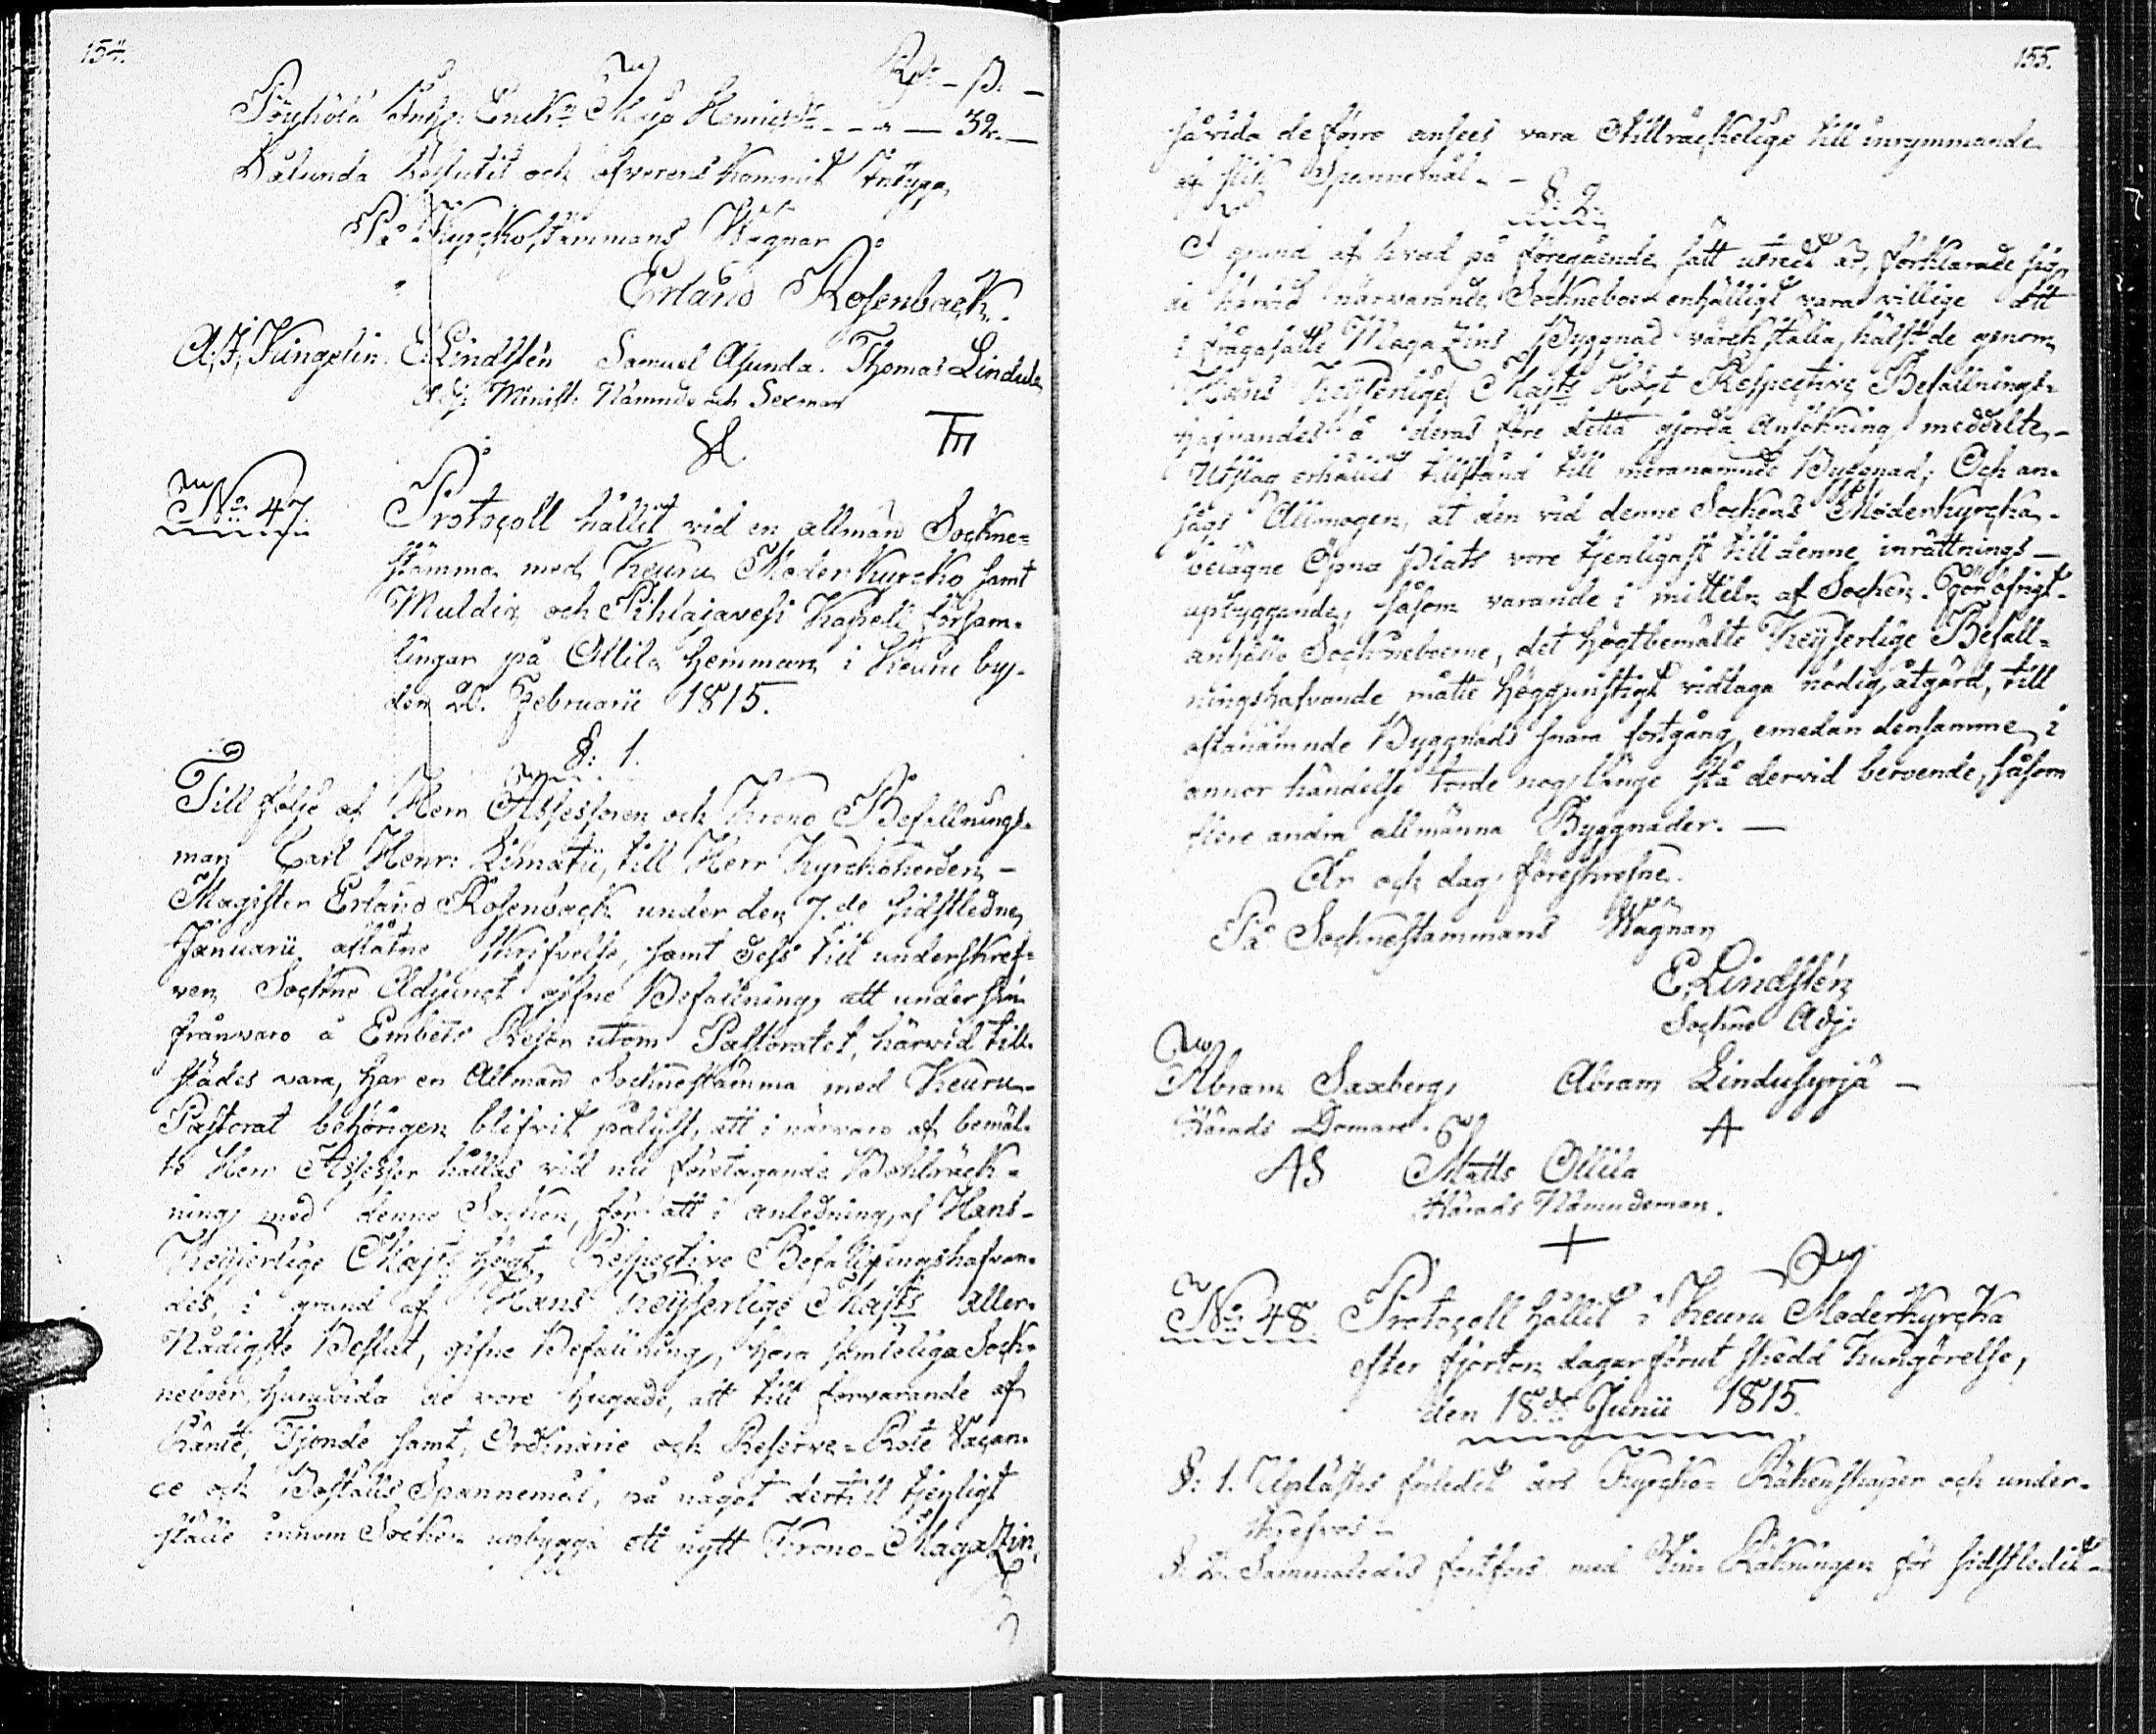 154.
Rd: – ß. –
Pöyhölä Enk: Maja Henricsdr – – 32. –
Sålunda beslutit och öfverenskommit intyga,
På Kyrckostämmans Wägnar
Erland Rosenback.
A: J: Kingelin E: Lindstén Samuel Asunda. Thomas Lindula
Adj: Minist: Nämnde och Sexman
No: 47. Protocoll hållit vid en allmän Sockne-
stämma med Keuru Moderkyrcko samt
Muldia och Pihlajavesi Kapell församl-
lingar på Ollila hemman i Keuru by
den 20. Februarii 1815.
§: 1.
Till följe af Herr Assessoren och Krono Befallnings-
man Carl Henr: Limatii, till Herr Kyrckoherden –
Magister Erland Rosenback under den 7.de sidstledne
Januarii aflåtne skrifvelse, samt dess till underskref-
ven Sockne Adjunct gifne Befallning, att under sin
frånvaro å Embets Resor utom Pastoratet, härvid till-
städes vara, har en Allmän Sochnestämma med Keuru
Pastorat behörigen blifvit pålyst, att i närvaro af bemäl-
te Herr Assessor hållas vid nu företagande Bohlräck-
ning med denne Socken, för att i anledning af Hans
Keijserlige Majts högt Respective Befallningshafvan-
des, i grund af Hans Keijserlige Majts Aller-
Nådigste Beslut, gifne Befallning, höra samteliga Sock-
neboer, huruvida de vore hugade, att till förvarande af
Ränte, Tijonde samt, Ordinarie och Reserve-Rote Vacan-
ce och Boställs Spannemål, på något dertill tjenligt
ställe innom Socken upbygga ett nytt Krono-Magazin,
155.
såvida de förre ansees vara otillräckelige till inrymmande
af slik Spannemål. –
§: 2.
I grund af hvad på föregående sätt utredt är, förklarade sig
de härvid närvarande Sockneboer enhälligt vara villige att
i frågasatte Magazins Byggnad värckställa, hälst de genom
Hans Keijserlige Majts Högt Respective Befallnings-
hafvandes å deras före detta gjorda Ansökning meddelte
Utslag erhållit tillstånd till meranämnde Byggnad; Och an-
sågs Allmogen, at den vid denne Sockens Moderkyrcka
belägne öpna plats vore tjenligast till denne inrättnings
upbyggande, såsom varande i mitteln af Socken. För öfrigt
anhöllo Sockneboerne, det högtbemälte Keijserlige Befall-
ningshafvande måtte höggunstigt vidtaga nödig åtgärd, till
oftanämnde Byggnads snara fortgång, emedan densamme i
annor händelse torde nog länge stå dervid beroende, såsom
flere andra allmänna Byggnader. –
År och dag föreskrefne.
På Socknestämmans Wägnar
E: Lindstén
Sockne Adj:
Abram Saxberg, Abram Lindusyrjä –
Härads Domare.
A
AS Matts Ollila
Härads Nämndeman.
+
No: 48 Protocoll hållit i Keuru Moderkyrcka
efter fjorton dagar förut skedd kungörelse,
den 18.de Junii 1815.
§: 1. Uplästes förledit års Kyrcko-Räkenskaper och under-
skrefvos –
§: 2. Sammaledes fortfors med Vin Räkningen för sidstledit